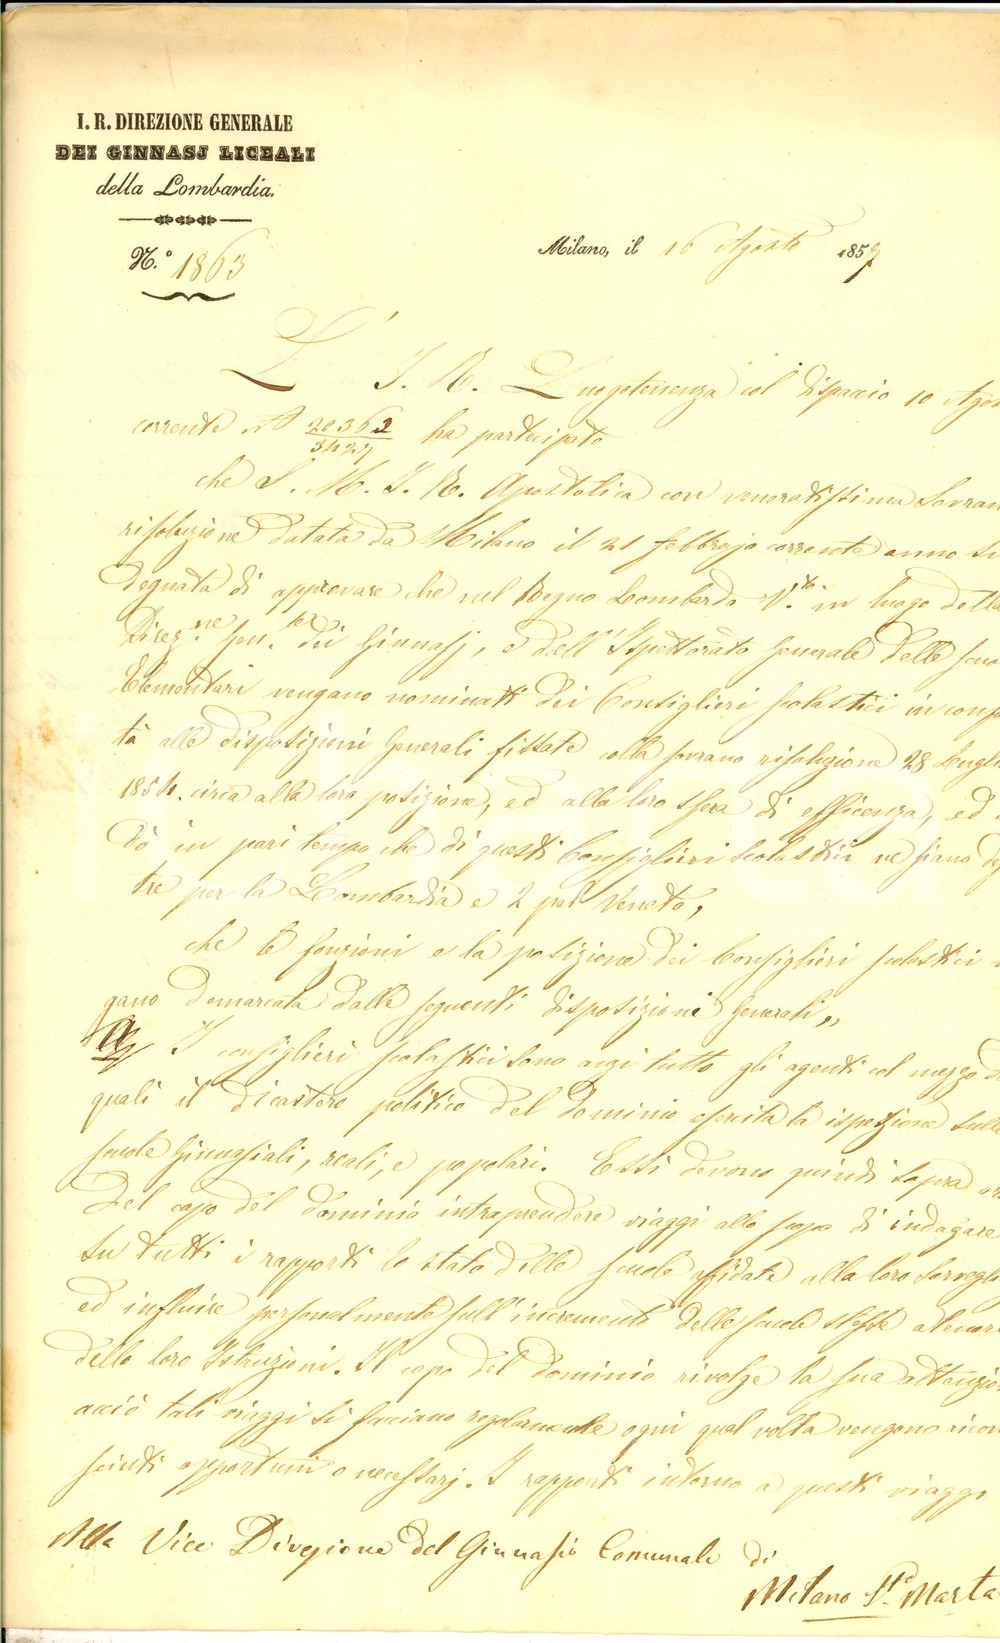 I. R. DIREZIONE GENERALE
DEI GINNASJ LICEALI
della Lombardia.
N.º 1863
Milano, il 16 Agosto 1857
L' I. R. Luogotenenza col dispaccio 10 Agos
corrente N 20362 ha partecipato
3427
che S. M. I. R. Apostolica con veneratissima Sovran
risoluzione datata da Milano il 21 febbrajo corrente anno si
degnata di approvare che nel Regno Lombardo V.to in luogo della
Direz.ne Gen.le dei Ginnasj, e dell'Ispettorato Generale delle scuo
Elementari vengano nominati dei Consiglieri scolastici in conf
tà alle disposizioni Generali fissate colla sovrana risoluzione 28 Lugli
1854. circa alla loro posizione, ed alla loro sfera di efficenza, ed
dò in pari tempo che di questi Consiglieri Scolastici ne siano de
tre per la Lombardia e 2 pel Veneto,
che le funzioni e la posizione dei Consiglieri scolastici
gano demarcata dalle seguenti disposizioni Generali,,
a) I consiglieri scolastici sono anzi tutto gli agenti col mezzo d
quali il dicastero politico del dominio esercita la ispezione sulle
scuole Ginnasiali, reali, e popolari. Essi devono quindi sopra or
del capo del dominio intraprendere viaggi allo scopo di indagare
su tutti i rapporti lo stato delle scuole affidate alla loro sorvegli
ed influire personalmente sull'incremento delle scuole stesse a tenor
delle loro Istruzioni. Il capo del dominio rivolge la sua attenzion
acciò tali viaggi si facciano regolarmente ogni qual volta vengono ricon
sciuti opportuni o necessarj. I rapporti intorno a questi viaggi
Alla Vice Direzione del Ginnasio Comunale di
Milano S.ta Marta